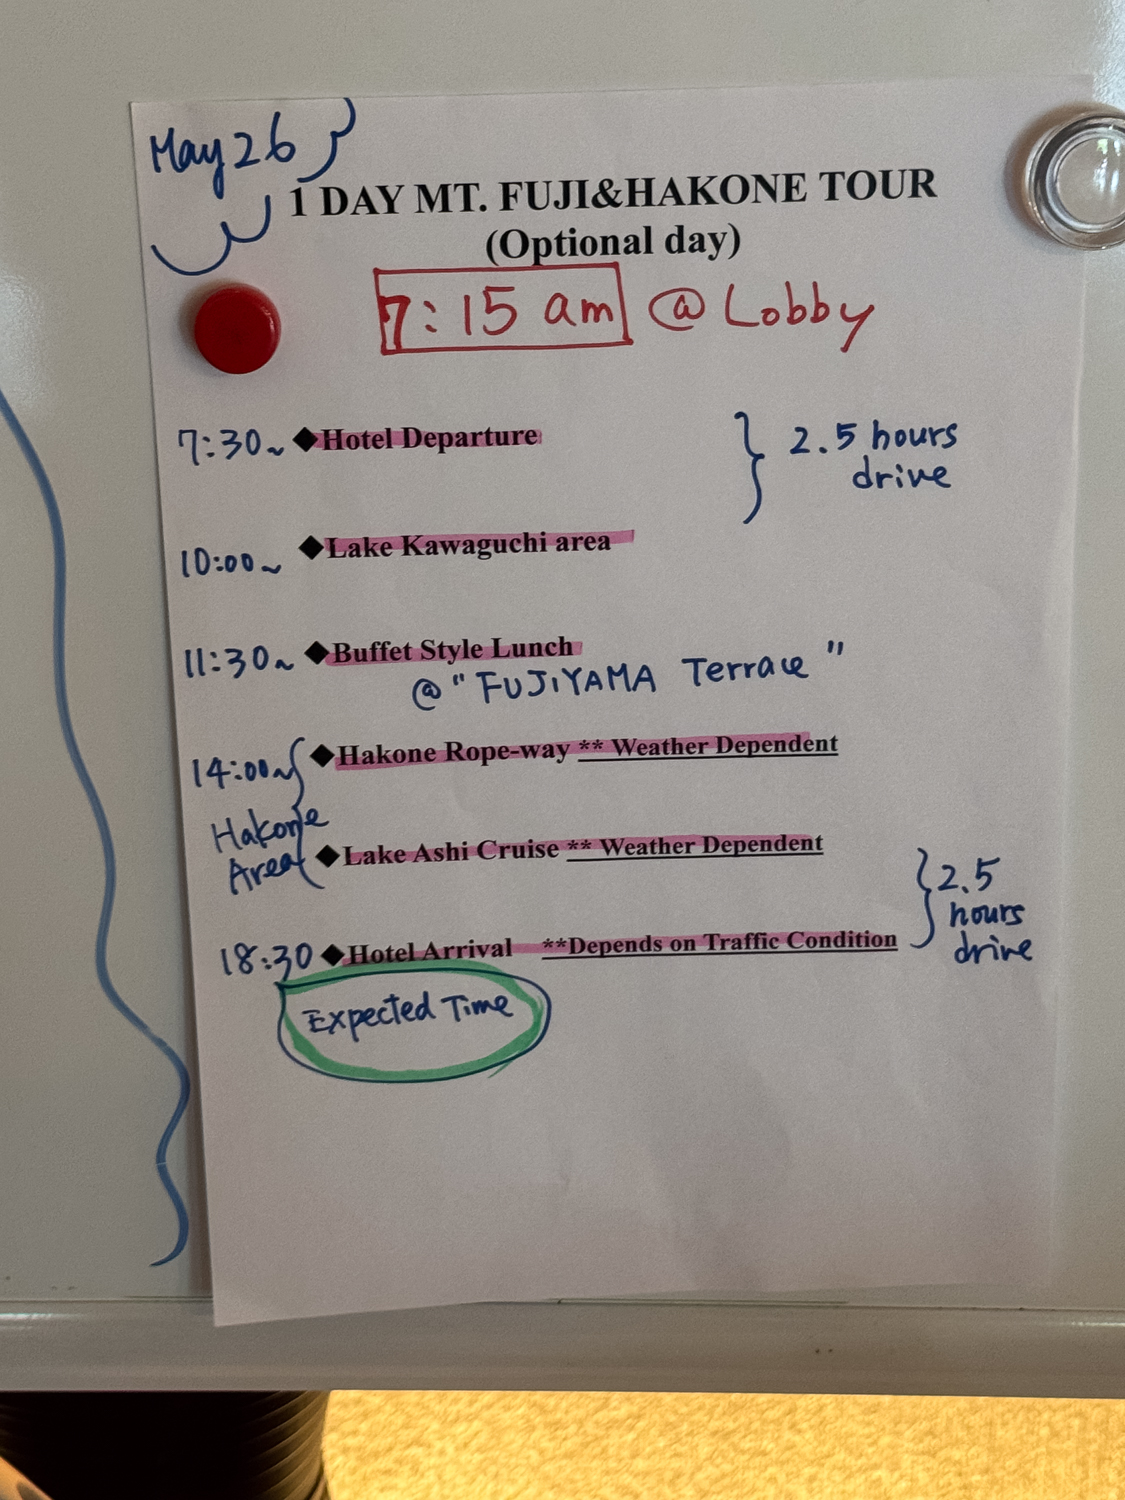 May 26
1 DAY MT. FUJI&HAKONE TOUR
(Optional day)
7:15 am @ Lobby
7:30~ ◆Hotel Departure
2.5 hours
drive
10:00~ ◆Lake Kawaguchi area
11:30~ ◆Buffet Style Lunch
@ "FUJIYAMA Terrace"
14:00~ ◆Hakone Rope-way ** Weather Dependent
Hakone
Area
◆Lake Ashi Cruise ** Weather Dependent
2.5
hours
drive
18:30 ◆Hotel Arrival **Depends on Traffic Condition
Expected Time